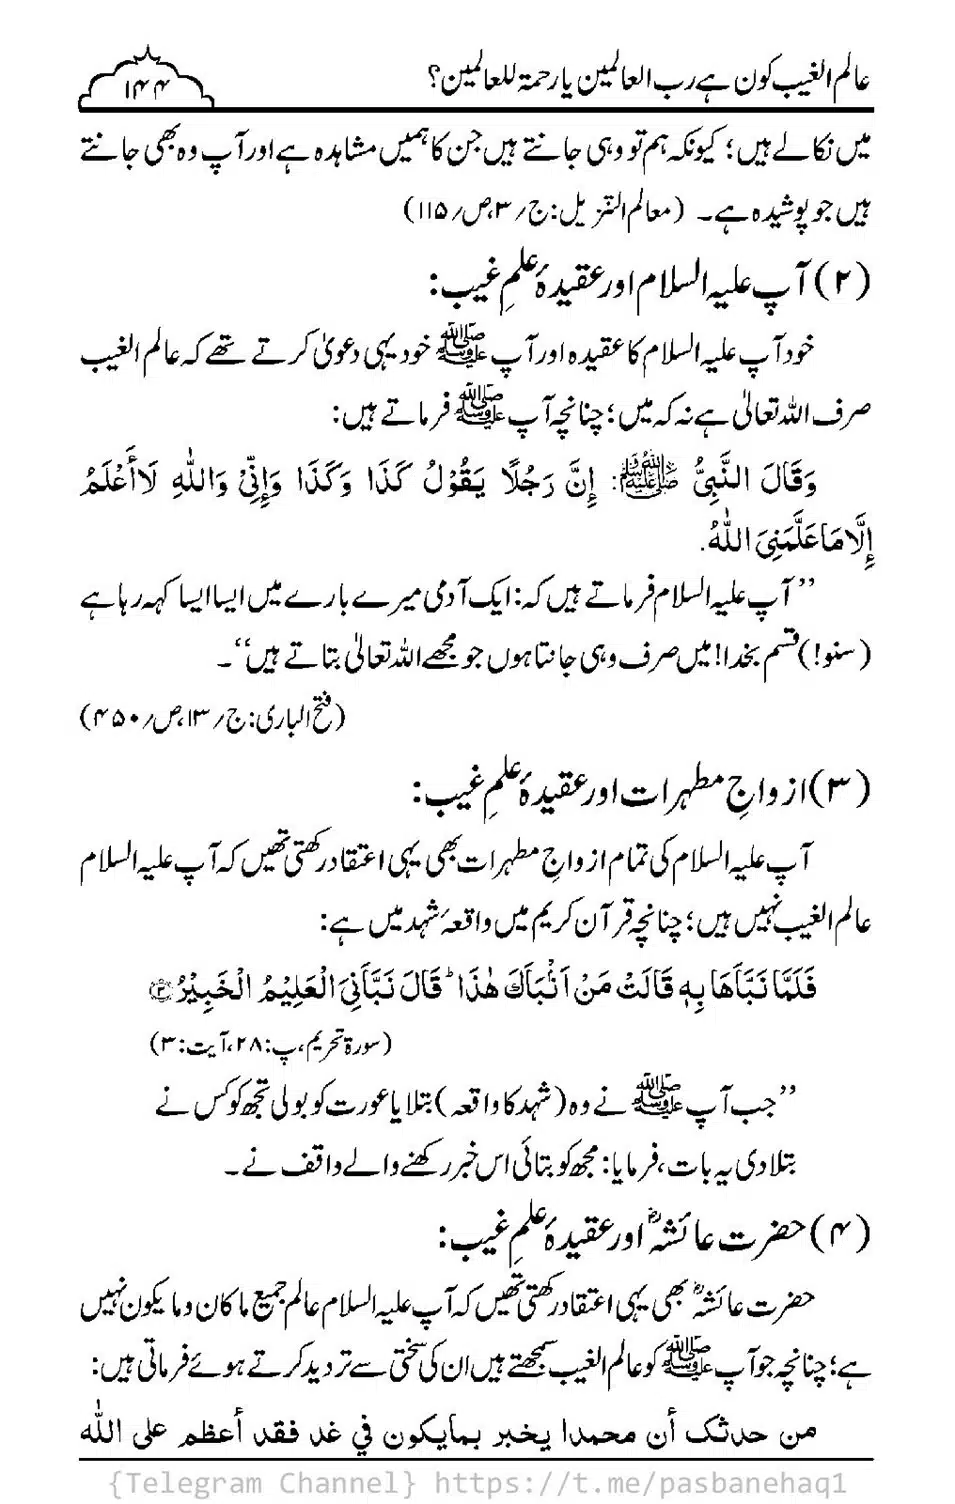 عالم الغیب کون ہے رب العالمین یا رحمۃ للعالمین؟
۱۴۴
میں نکالے ہیں؛ کیونکہ ہم تو وہی جانتے ہیں جن کا ہمیں مشاہدہ ہے اور آپ وہ بھی جانتے
ہیں جو پوشیدہ ہے۔ (معالم التنزیل: ج/۳، ص/۱۱۵)
(۲) آپ علیہ السلام اور عقیدۂ علمِ غیب:
خود آپ علیہ السلام کا عقیدہ اور آپ ﷺ خود یہی دعویٰ کرتے تھے کہ عالم الغیب
صرف اللہ تعالیٰ ہے نہ کہ میں؛ چنانچہ آپ ﷺ فرماتے ہیں:
وَقَالَ النَّبِیُّ ﷺ: إِنَّ رَجُلًا یَقُوْلُ کَذَا وَکَذَا وَإِنِّیْ وَاللّٰهِ لَاأَعْلَمُ
إِلَّا مَا عَلَّمَنِیَ اللّٰهُ.
’’آپ علیہ السلام فرماتے ہیں کہ: ایک آدمی میرے بارے میں ایسا ایسا کہہ رہا ہے
(سنو!) قسم بخدا! میں صرف وہی جانتا ہوں جو مجھے اللہ تعالیٰ بتاتے ہیں‘‘۔
(فتح الباری: ج/۱۳، ص/۴۵۰)
(۳) ازواجِ مطہرات اور عقیدۂ علمِ غیب:
آپ علیہ السلام کی تمام ازواجِ مطہرات بھی یہی اعتقاد رکھتی تھیں کہ آپ علیہ السلام
عالم الغیب نہیں ہیں؛ چنانچہ قرآن کریم میں واقعۂ شہد میں ہے:
فَلَمَّا نَبَّاَهَا بِهٖ قَالَتْ مَنْ اَنْۢبَاَكَ هٰذَا ؕ قَالَ نَبَّاَنِیَ الْعَلِیْمُ الْخَبِیْرُ ﴿۳﴾
(سورۃ تحریم، پ: ۲۸، آیت: ۳)
’’جب آپ ﷺ نے وہ (شہد کا واقعہ) بتلایا عورت کو بولی تجھ کو کس نے
بتلا دی یہ بات، فرمایا: مجھ کو بتائی اس خبر رکھنے والے واقف نے۔
(۴) حضرت عائشہؓ اور عقیدۂ علمِ غیب:
حضرت عائشہؓ بھی یہی اعتقاد رکھتی تھیں کہ آپ علیہ السلام عالم جمیع ماکان و مایکون نہیں
ہے؛ چنانچہ جو آپ ﷺ کو عالم الغیب سمجھتے ہیں ان کی سختی سے تردید کرتے ہوئے فرماتی ہیں:
من حدثک أن محمدا یخبر بمایکون في غد فقد أعظم علی اللّٰه
{Telegram Channel} https://t.me/pasbanehaq1